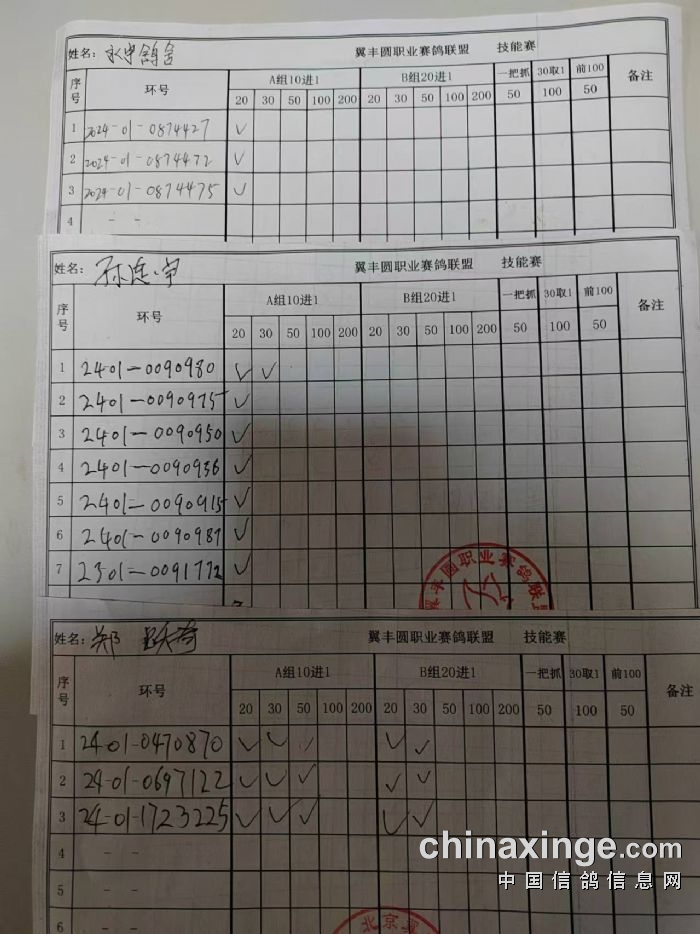 姓名: 永中鸽舍 翼丰圆职业赛鸽联盟 技能赛
序号 环号 A组10进1 B组20进1 一把抓 30取1 前100 备注
20 30 50 100 200 20 30 50 100 200 50 100 50
1 2024-01-0874427 ✓
2 2024-01-0874472 ✓
3 2024-01-0874475 ✓
4 - -
姓名: 孙连宇 翼丰圆职业赛鸽联盟 技能赛
序号 环号 A组10进1 B组20进1 一把抓 30取1 前100 备注
20 30 50 100 200 20 30 50 100 200 50 100 50
1 2401-0090980 ✓ ✓
2 2401-0090975 ✓
3 2401-0090950 ✓
4 2401-0090936 ✓
5 2401-0090915 ✓
6 2401-0090987 ✓
7 2301-0091772 ✓
翼丰圆职业赛鸽联
姓名: 郑 翼丰圆职业赛鸽联盟 技能赛
序号 环号 A组10进1 B组20进1 一把抓 30取1 前100 备注
20 30 50 100 200 20 30 50 100 200 50 100 50
1 24-01-0470870 ✓ ✓ ✓ ✓ ✓
2 24-01-0697122 ✓ ✓ ✓ ✓ ✓
3 24-01-1723225 ✓ ✓ ✓ ✓ ✓
4 - -
5 - -
6 - -
北京翼
chinaxinge.com
中国信鸽信息网